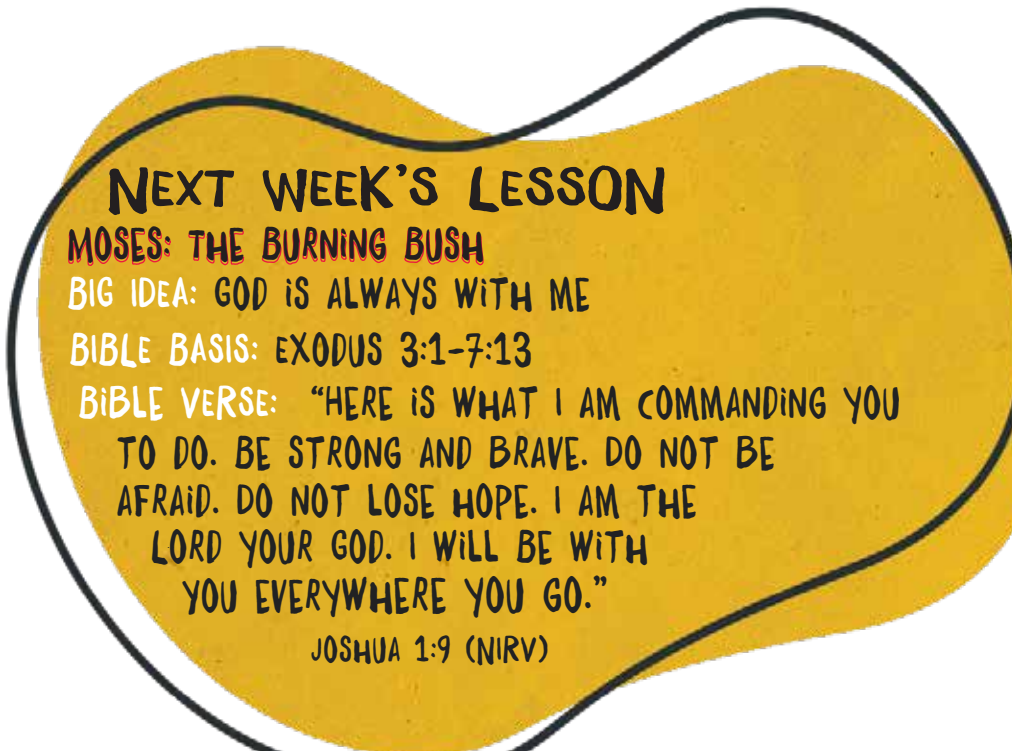 NEXT WEEK'S LESSON
MOSES: THE BURNING BUSH
BIG IDEA: GOD IS ALWAYS WITH ME
BIBLE BASIS: EXODUS 3:1-7:13
BIBLE VERSE: “HERE IS WHAT I AM COMMANDING YOU
TO DO. BE STRONG AND BRAVE. DO NOT BE
AFRAID. DO NOT LOSE HOPE. I AM THE
LORD YOUR GOD. I WILL BE WITH
YOU EVERYWHERE YOU GO.”
JOSHUA 1:9 (NIRV)